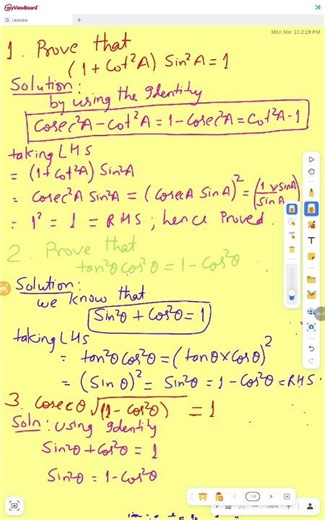 myViewBoard
Mon Mar 23 2:29 PM
Untitled
1. Prove that
(1 + Cot²A) Sin²A = 1
Solution:
by using the Identity
Cosec²A - Cot²A = 1 - Cosec²A = Cot²A - 1
taking LHS
= (1 + Cot²A) Sin²A
= Cosec²A Sin²A = (CosecA SinA)² = (1/SinA × SinA)²
= 1² = 1 = RHS; hence Proved.
2. Prove that
tan²θ Cos²θ = 1 - Cos²θ
Solution:
we know that
Sin²θ + Cos²θ = 1
taking LHS
= tan²θ Cos²θ = (tanθ × Cosθ)²
= (Sin θ)² = Sin²θ = 1 - Cos²θ = RHS.
3. Cosec θ √(1 - Cos²θ) = 1
Soln: using Identity
Sin²θ + Cos²θ = 1
Sin²θ = 1 - Cos²θ